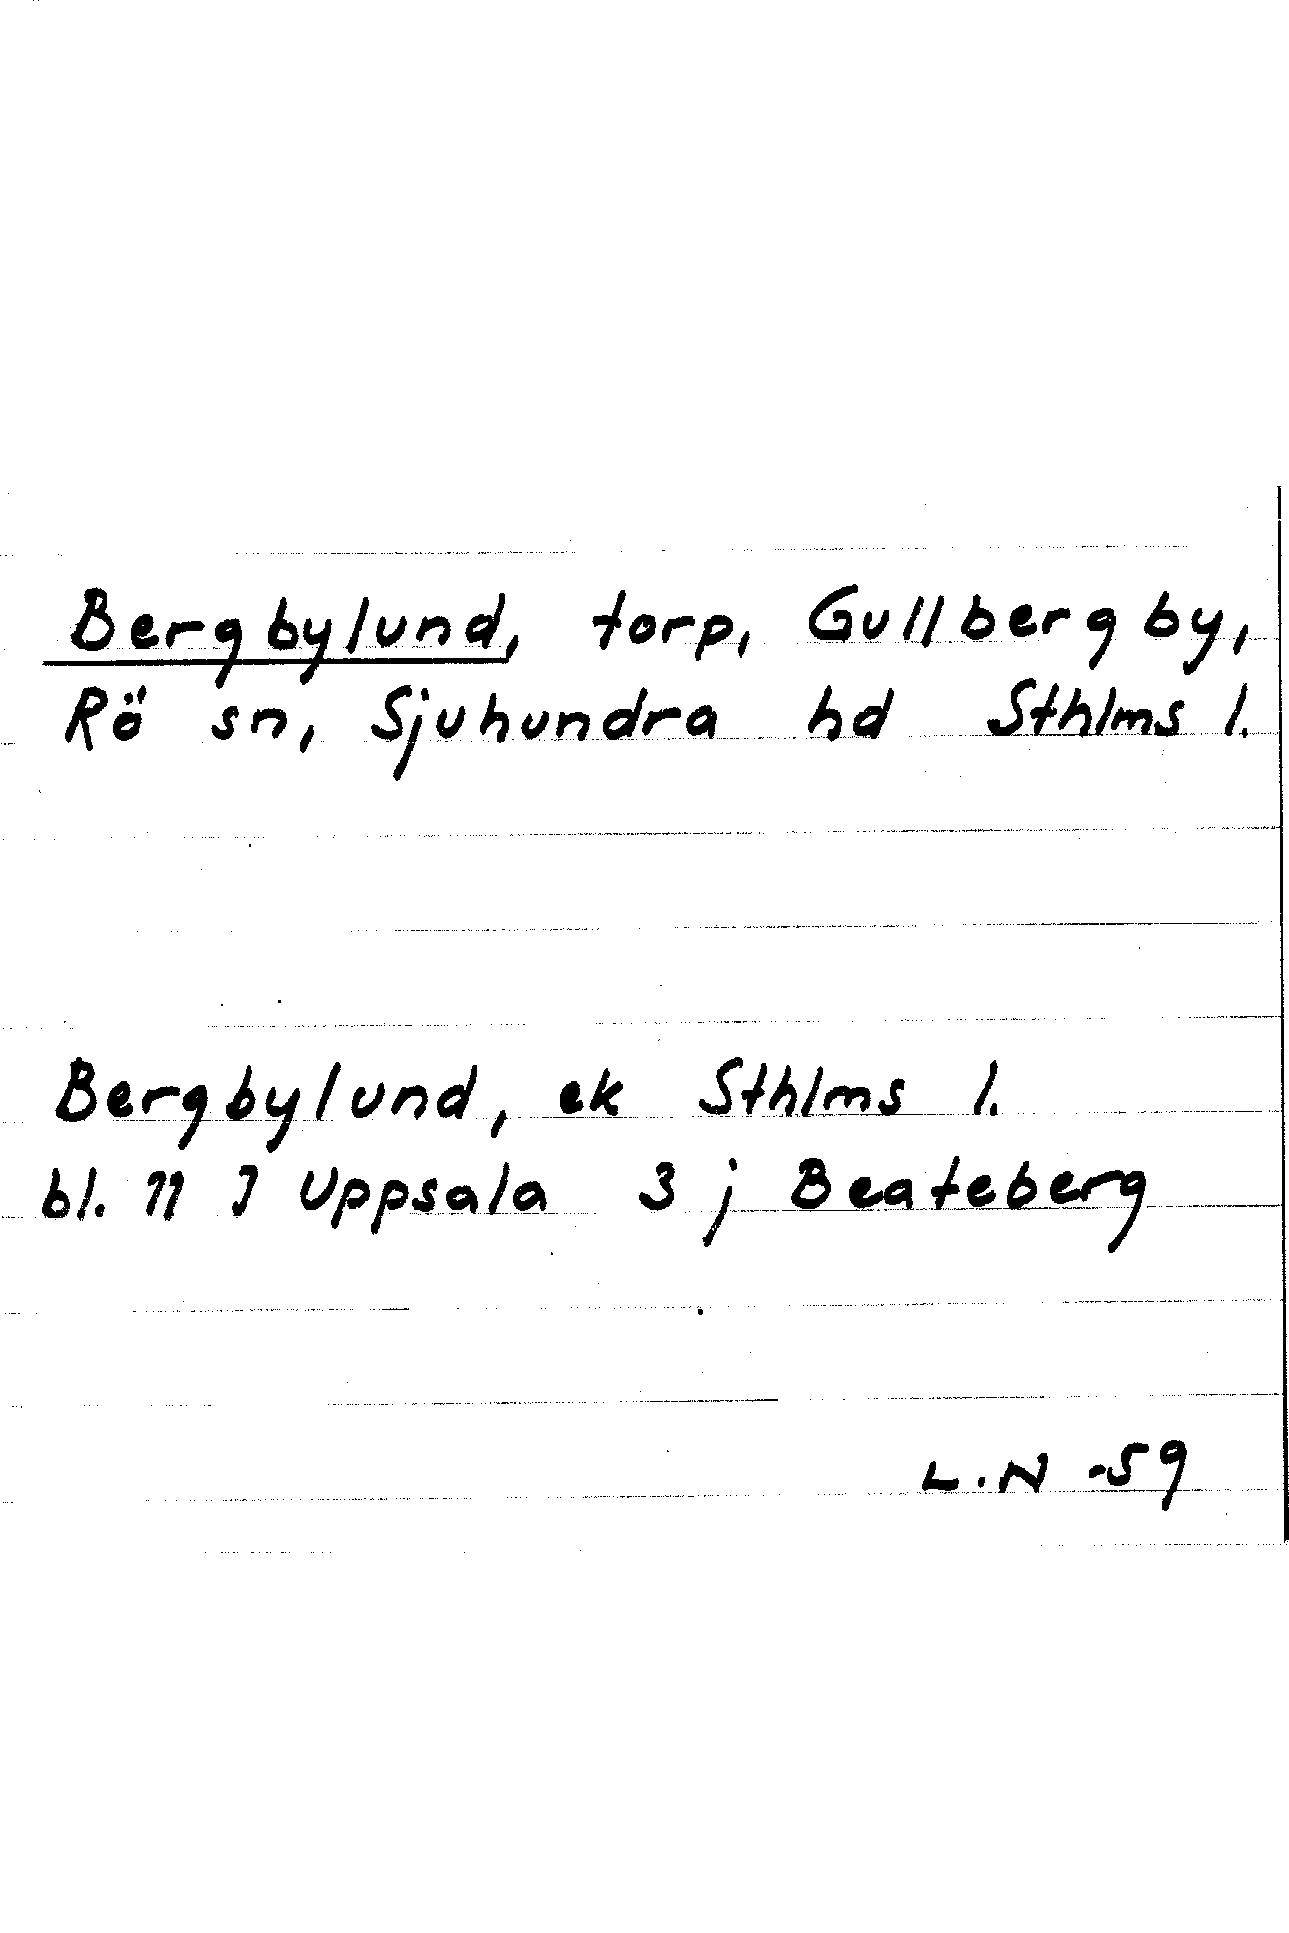 Bergbylund, torp, Gullbergby,
Rö sn, Sjuhundra hd Sthlms l.
Bergbylund, ek Sthlms l.
bl. 11 I Uppsala 3 j Beateberg
L.N -59